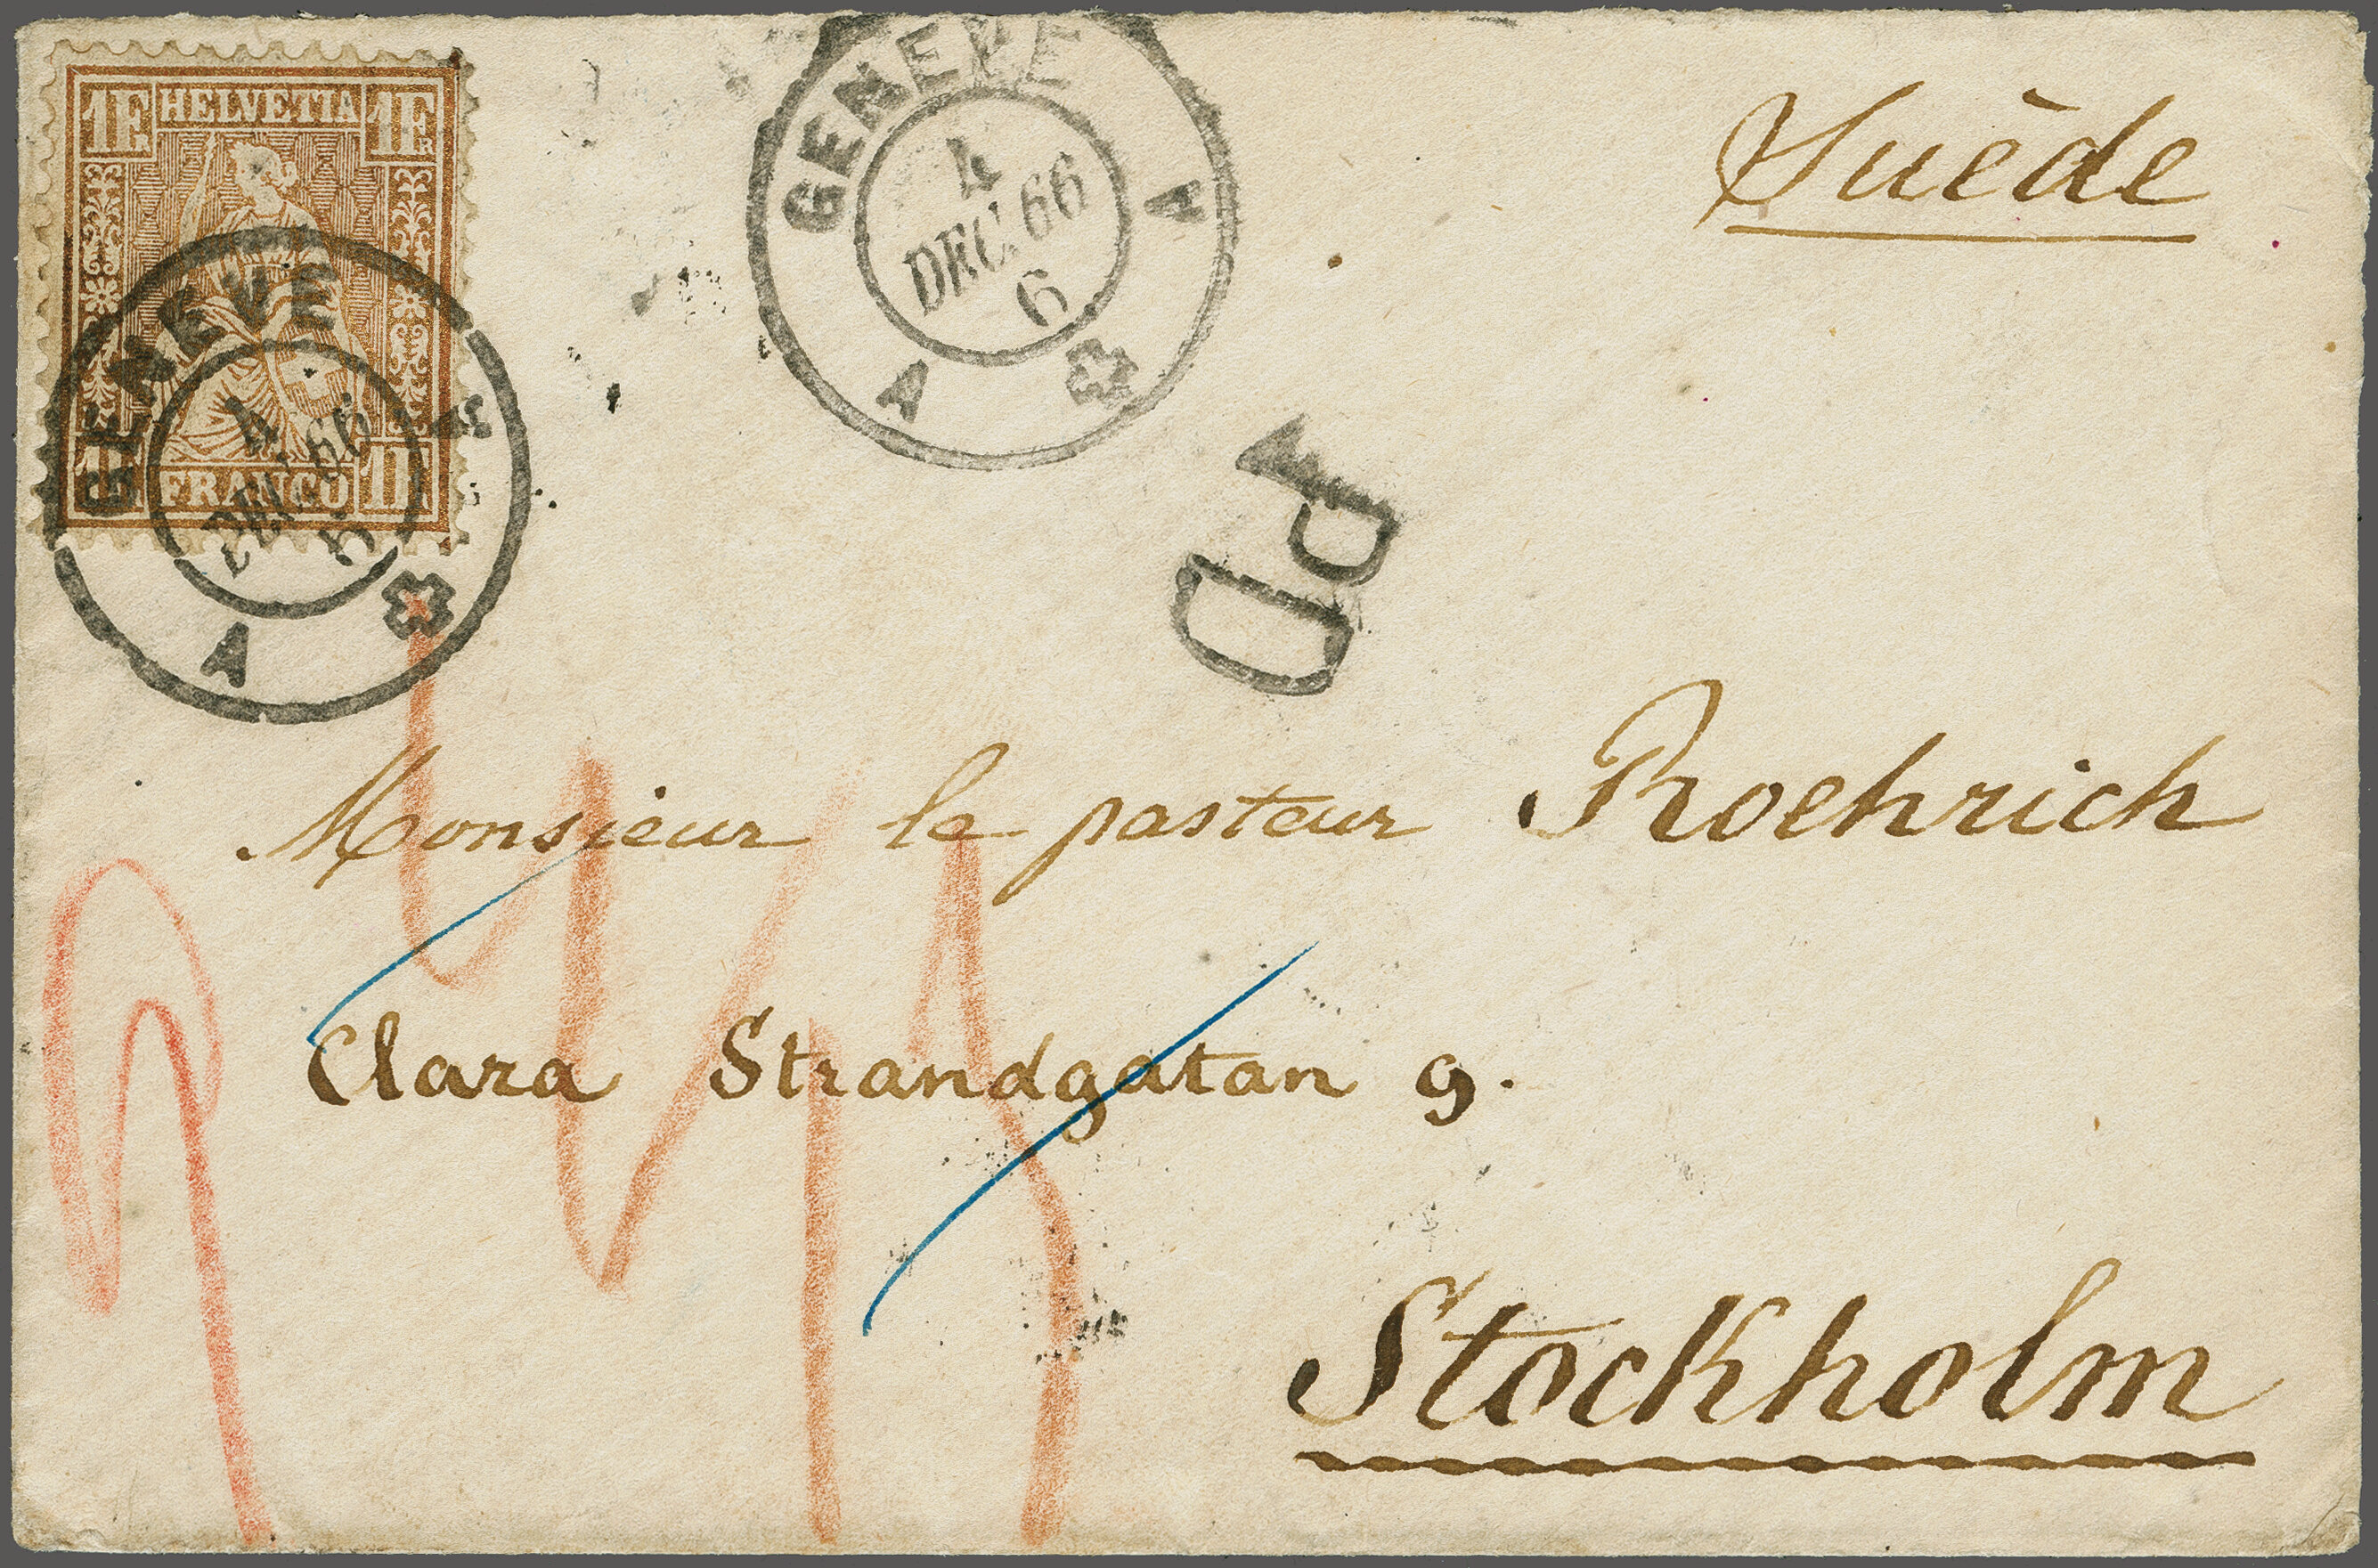 1F HELVETIA 1FR
FRANCO 1F
GENEVE
4
DEC 66
A A
GENEVE
4
DEC 66
6
A A
PD
Suède
Monsieur le pasteur Roehrich
Clara Strandgatan 9.
Stockholm